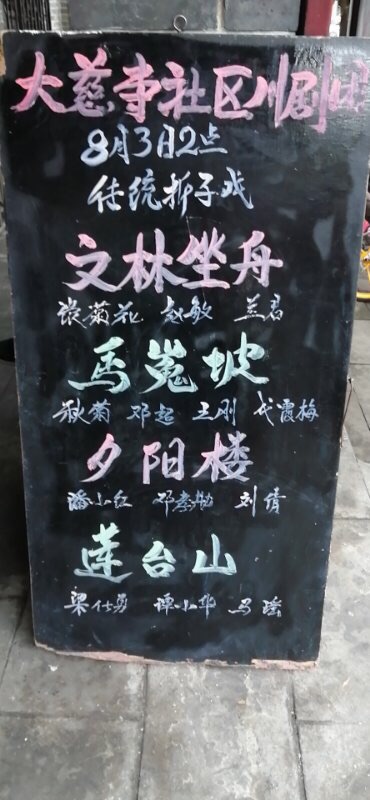 大慈寺社区川剧团
8月3日2点
传统折子戏
文林坐舟
菊花 赵敏 兰君
馬嵬坡
秋菊 邓超 王刚 弋霞梅
夕阳楼
潘小红 邓孝勋 刘倩
莲台山
梁仕勇 谭小华 马瑶